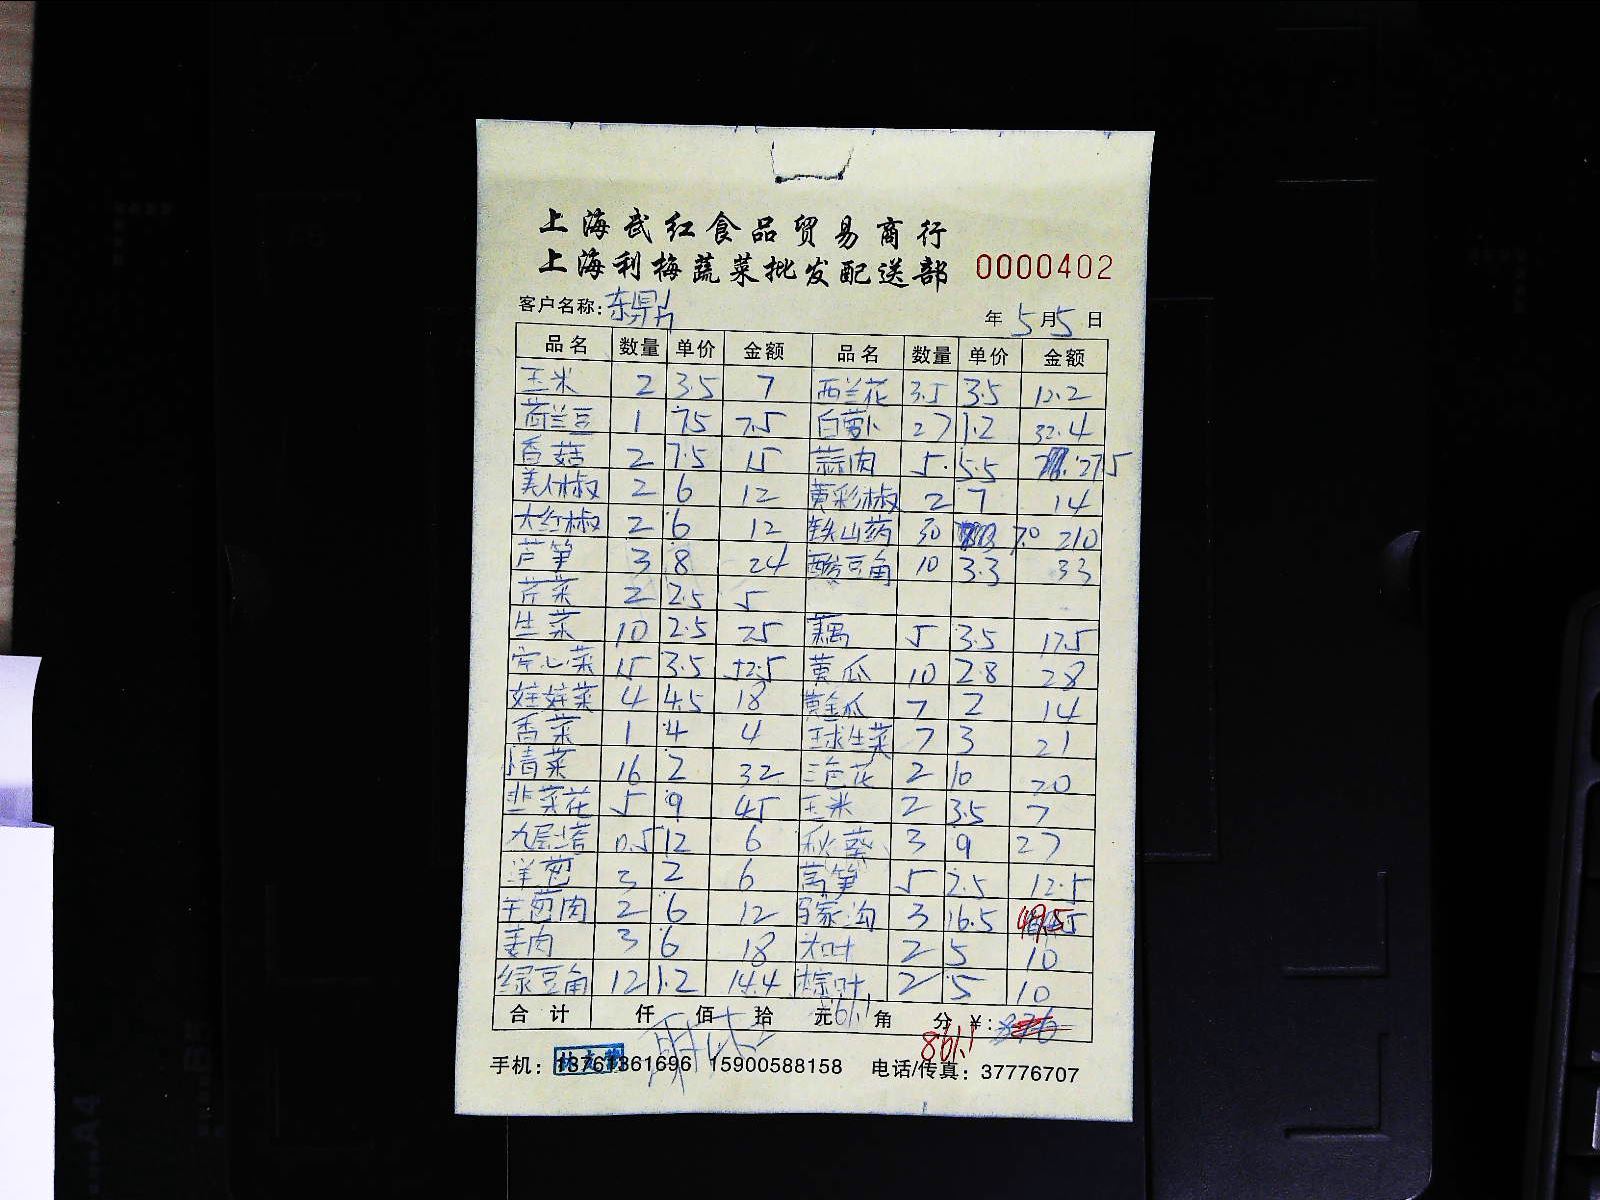 上海武红食品贸易商行
上海利梅蔬菜批发配送部 0000402
客户名称:东鼎 年5月5日
品名 数量 单价 金额 品名 数量 单价 金额
玉米 2 3.5 7 西兰花 3.5 3.5 12.2
荷兰豆 1 7.5 7.5 白萝卜 27 1.2 32.4
香菇 2 7.5 15 蒜肉 5 5.5 27.5
美人椒 2 6 12 黄彩椒 2 7 14
大红椒 2 6 12 铁山药 30 7.0 210
芦笋 3 8 24 酸豆角 10 3.3 33
芹菜 2 2.5 5
生菜 10 2.5 25 藕 5 3.5 17.5
空心菜 15 3.5 52.5 黄瓜 10 2.8 28
娃娃菜 4 4.5 18 黄金瓜 7 2 14
香菜 1 4 4 球生菜 7 3 21
青菜 16 2 32 三色花 2 10 20
韭菜花 5 9 45 玉米 2 3.5 7
九层塔 0.5 12 6 秋葵 3 9 27
洋葱 3 2 6 莴笋 5 2.5 12.5
羊葱肉 2 6 12 3 16.5 49.5
姜肉 3 6 18 2 5 10
绿豆角 12 1.2 14.4 棕叶 2 5 10
合计 仟 佰 拾 元 角 分 ¥: 876
861.1
手机: 13761361696 15900588158 电话/传真: 37776707